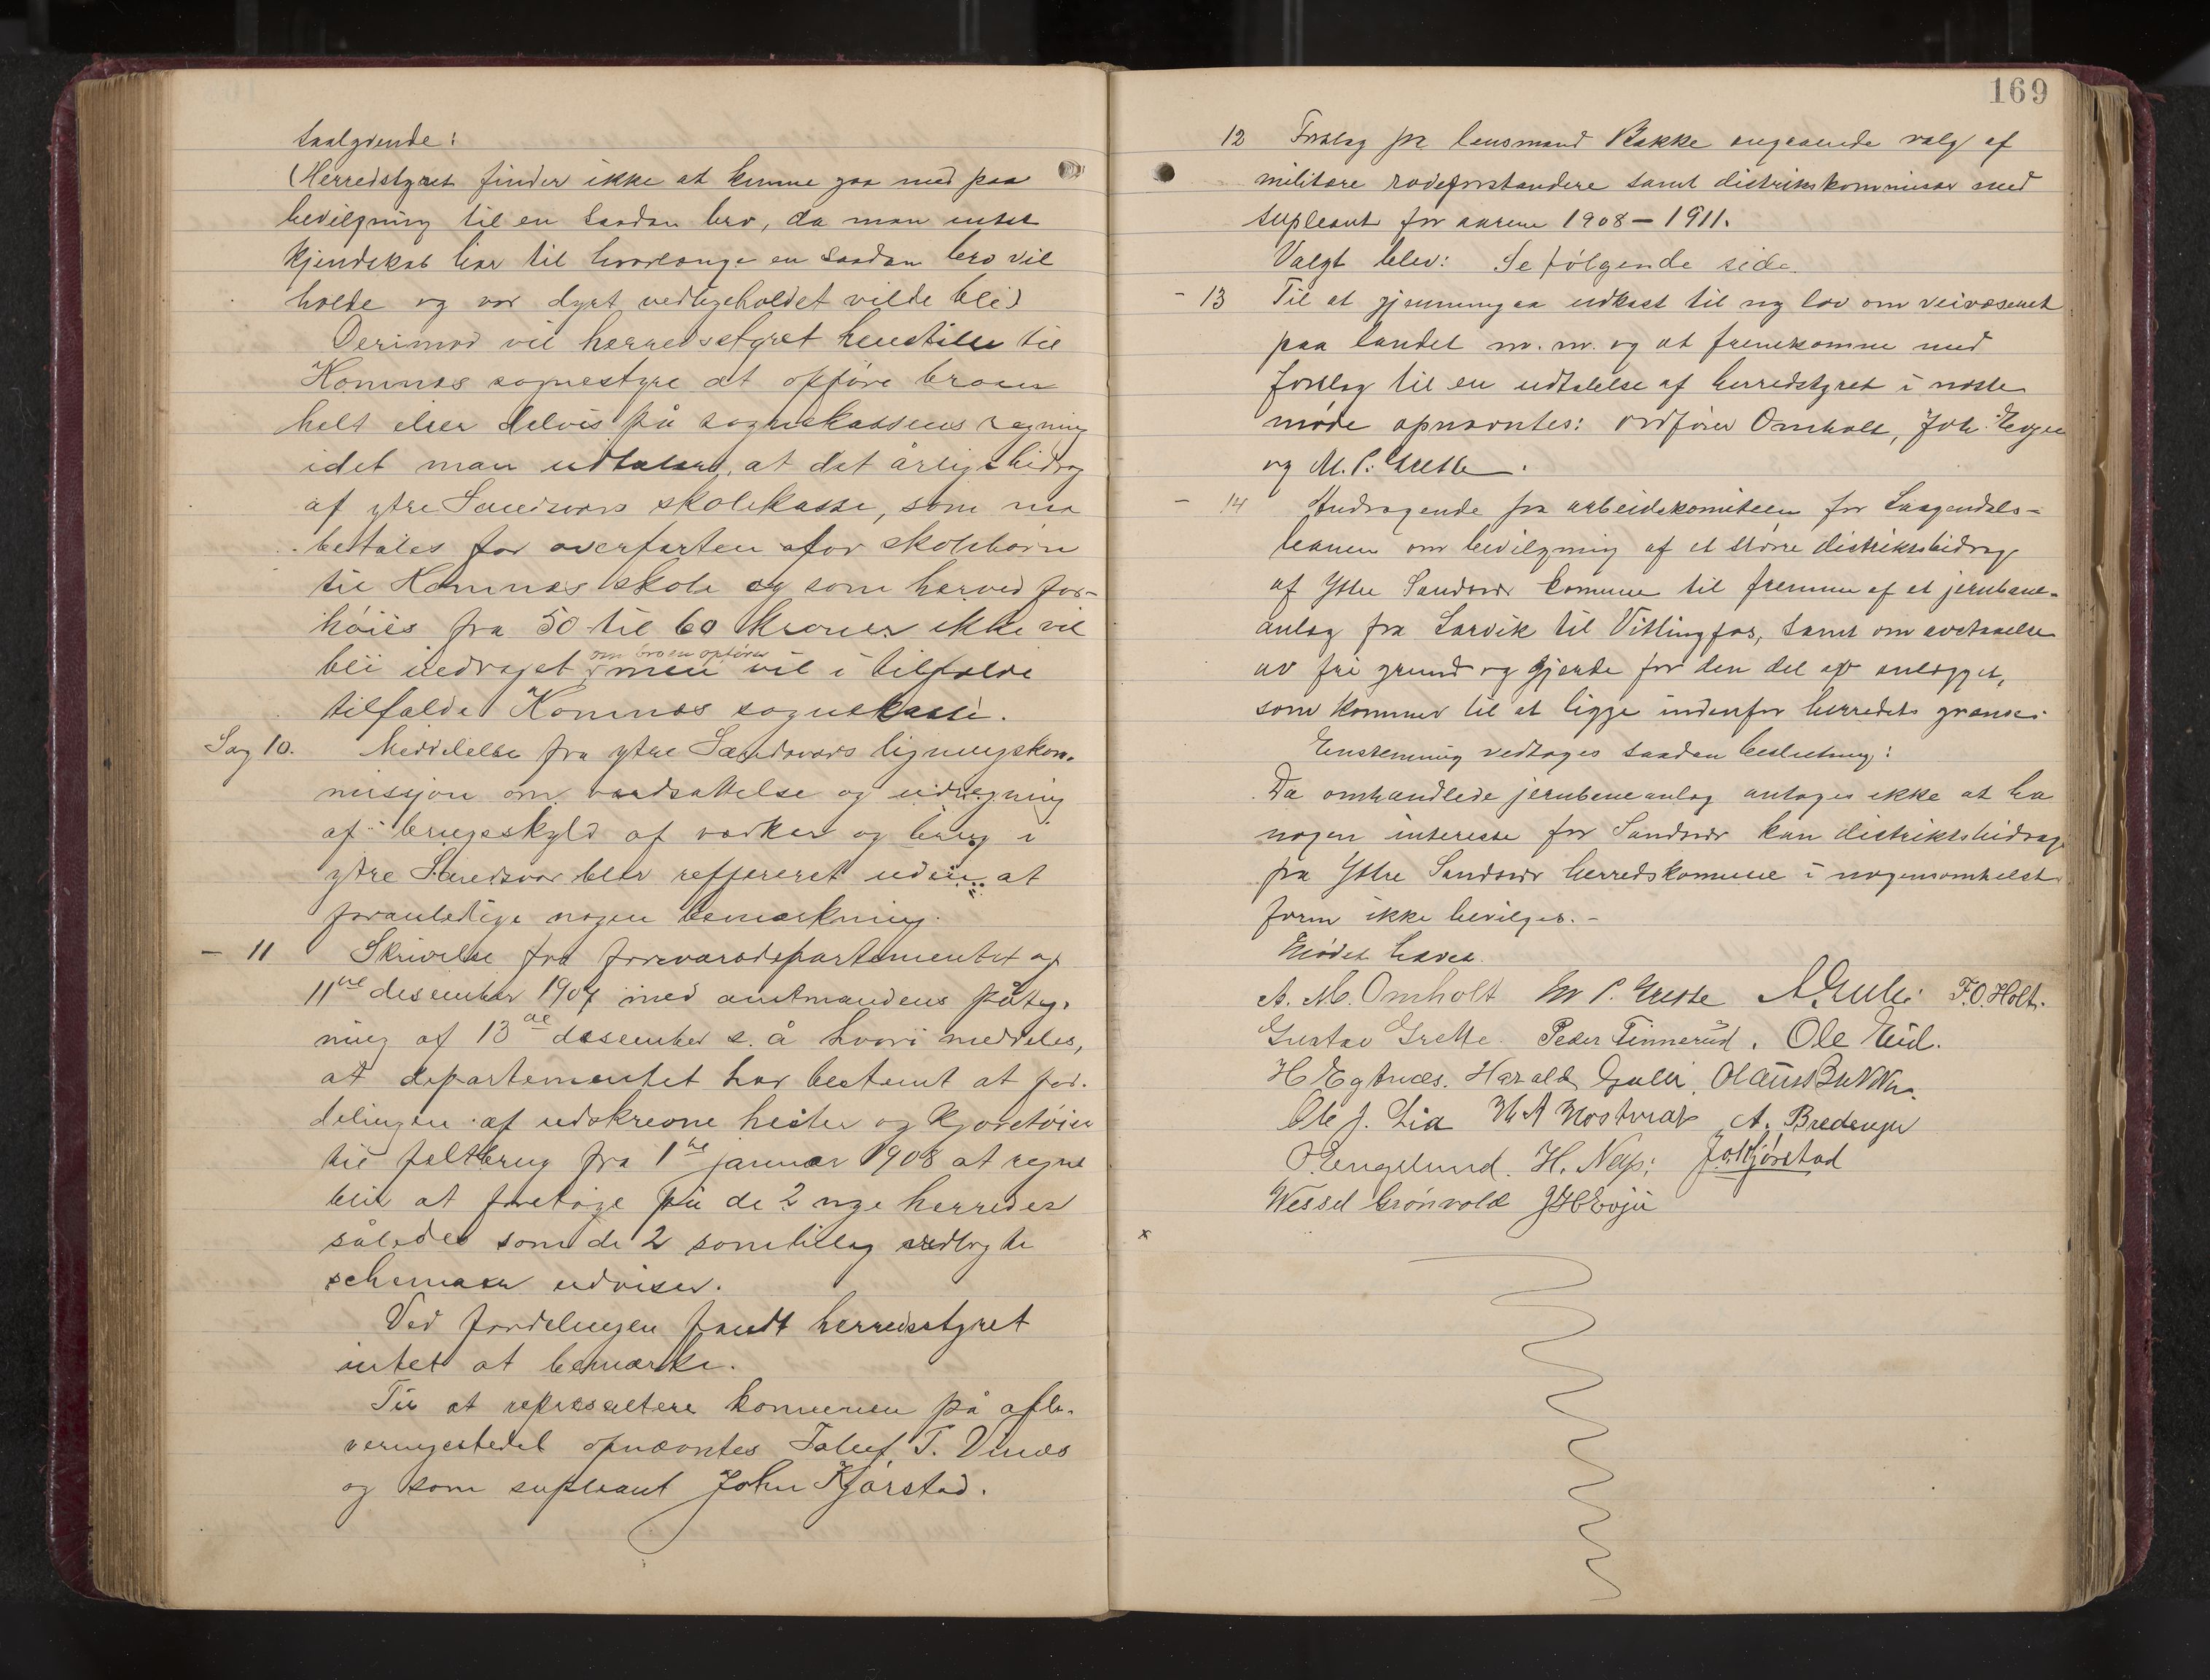 saalydende:
(Herredstyret finder ikke at kunne gaa med paa
bevilgning til en saadan bro, da man intet
kjendskab har til hvorlænge en saadan bro vil
holde og vor dyrt vedligeholdet vilde bli)
Derimod vil herredsstyret henstille til
Komnæs sognestyre at opføre broen
helt eller delvis på sognekassens regning
idet man udtaler, at det årlige bidrag
af ytre Sandsværs skolekasse, som nu
betales for overfarten for skolebørn
til Komnæs skole og som herved for-
høies fra 50 til 60 kroner ikke vil
om broen opføres
bli inddraget men vil i tilfælde
tilfalde Komnæs sognekasse.
Sag 10. Meddelelse fra ytre Sandsværs ligningskom-
missjon om værdsættelse og udregning
af brugsskyld af værker og brug i
ytre Sandsvær blev reffereret uden at
foranledige nogen bemærkning.
- 11 Skrivelse fra forsvarsdepartementet af
11te desember 1907 med amtmandens påteg-
ning af 13de desember s. å hvori meddeles,
at departementet har bestemt at for-
delingen af udskrevne hester og kjøretøier
til feltbrug fra 1ste januar 1908 at regne
blir at foretage på de 2 nye herreder
således som de 2 som bilag vedlagte
schemaer udviser.
Ved fordelingen fandt herredsstyret
intet at bemærke.
Til at representere komunen på afle-
veringsstedet opnævntes T. Vinæs
og som supleant John Kjørstad.
169
12 Forslag fra lensmand Bakke angaaende valg af
militære rodeforstandere samt distriktskommissær med
supleant for aarene 1908-1911.
Valgt blev: Se følgende side.
- 13 Til at gjennemgaa udkast til ny lov om veivæsenet
paa landet m. m. og at fremkomme med
forslag til en udtalelse af herredstyret i næste
møde opnævntes: ordfører Omholt, Joh. Evjue
og M. P. Grette.
- 14 Andragende fra arbeidskomiteen for Laagendals-
banen om bevilgning af et større distriktsbidrag
af Ytre Sandsvær komune til fremme af et jernbane-
anlæg fra Larvik til Vittingfos, samt om avstaaelse
av fri grund og gjerde for den del av anlægget,
som kommer til at ligge indenfor herredets grænser.
Enstemmig vedtoges saadan beslutning:
Da omhandlede jernbaneanlæg antages ikke at ha
nogen interesse for Sandsvær kan distriktsbidrag
fra Ytre Sandsvær herredskomune i nogensomhelst
form ikke bevilges. -
Mødet hævet.
A. M. Omholt M P. Grette A. Gulli F. O. Holt.
Gustav Grette. Peder Tinnerud. Ole Eid.
H Egtnæs. Harald Gulli.
Ole J. Lia A. Bredengen
O. Engelund. H. Næss; Joh Kjørstad
Wessel Grønvold J H Evju
x